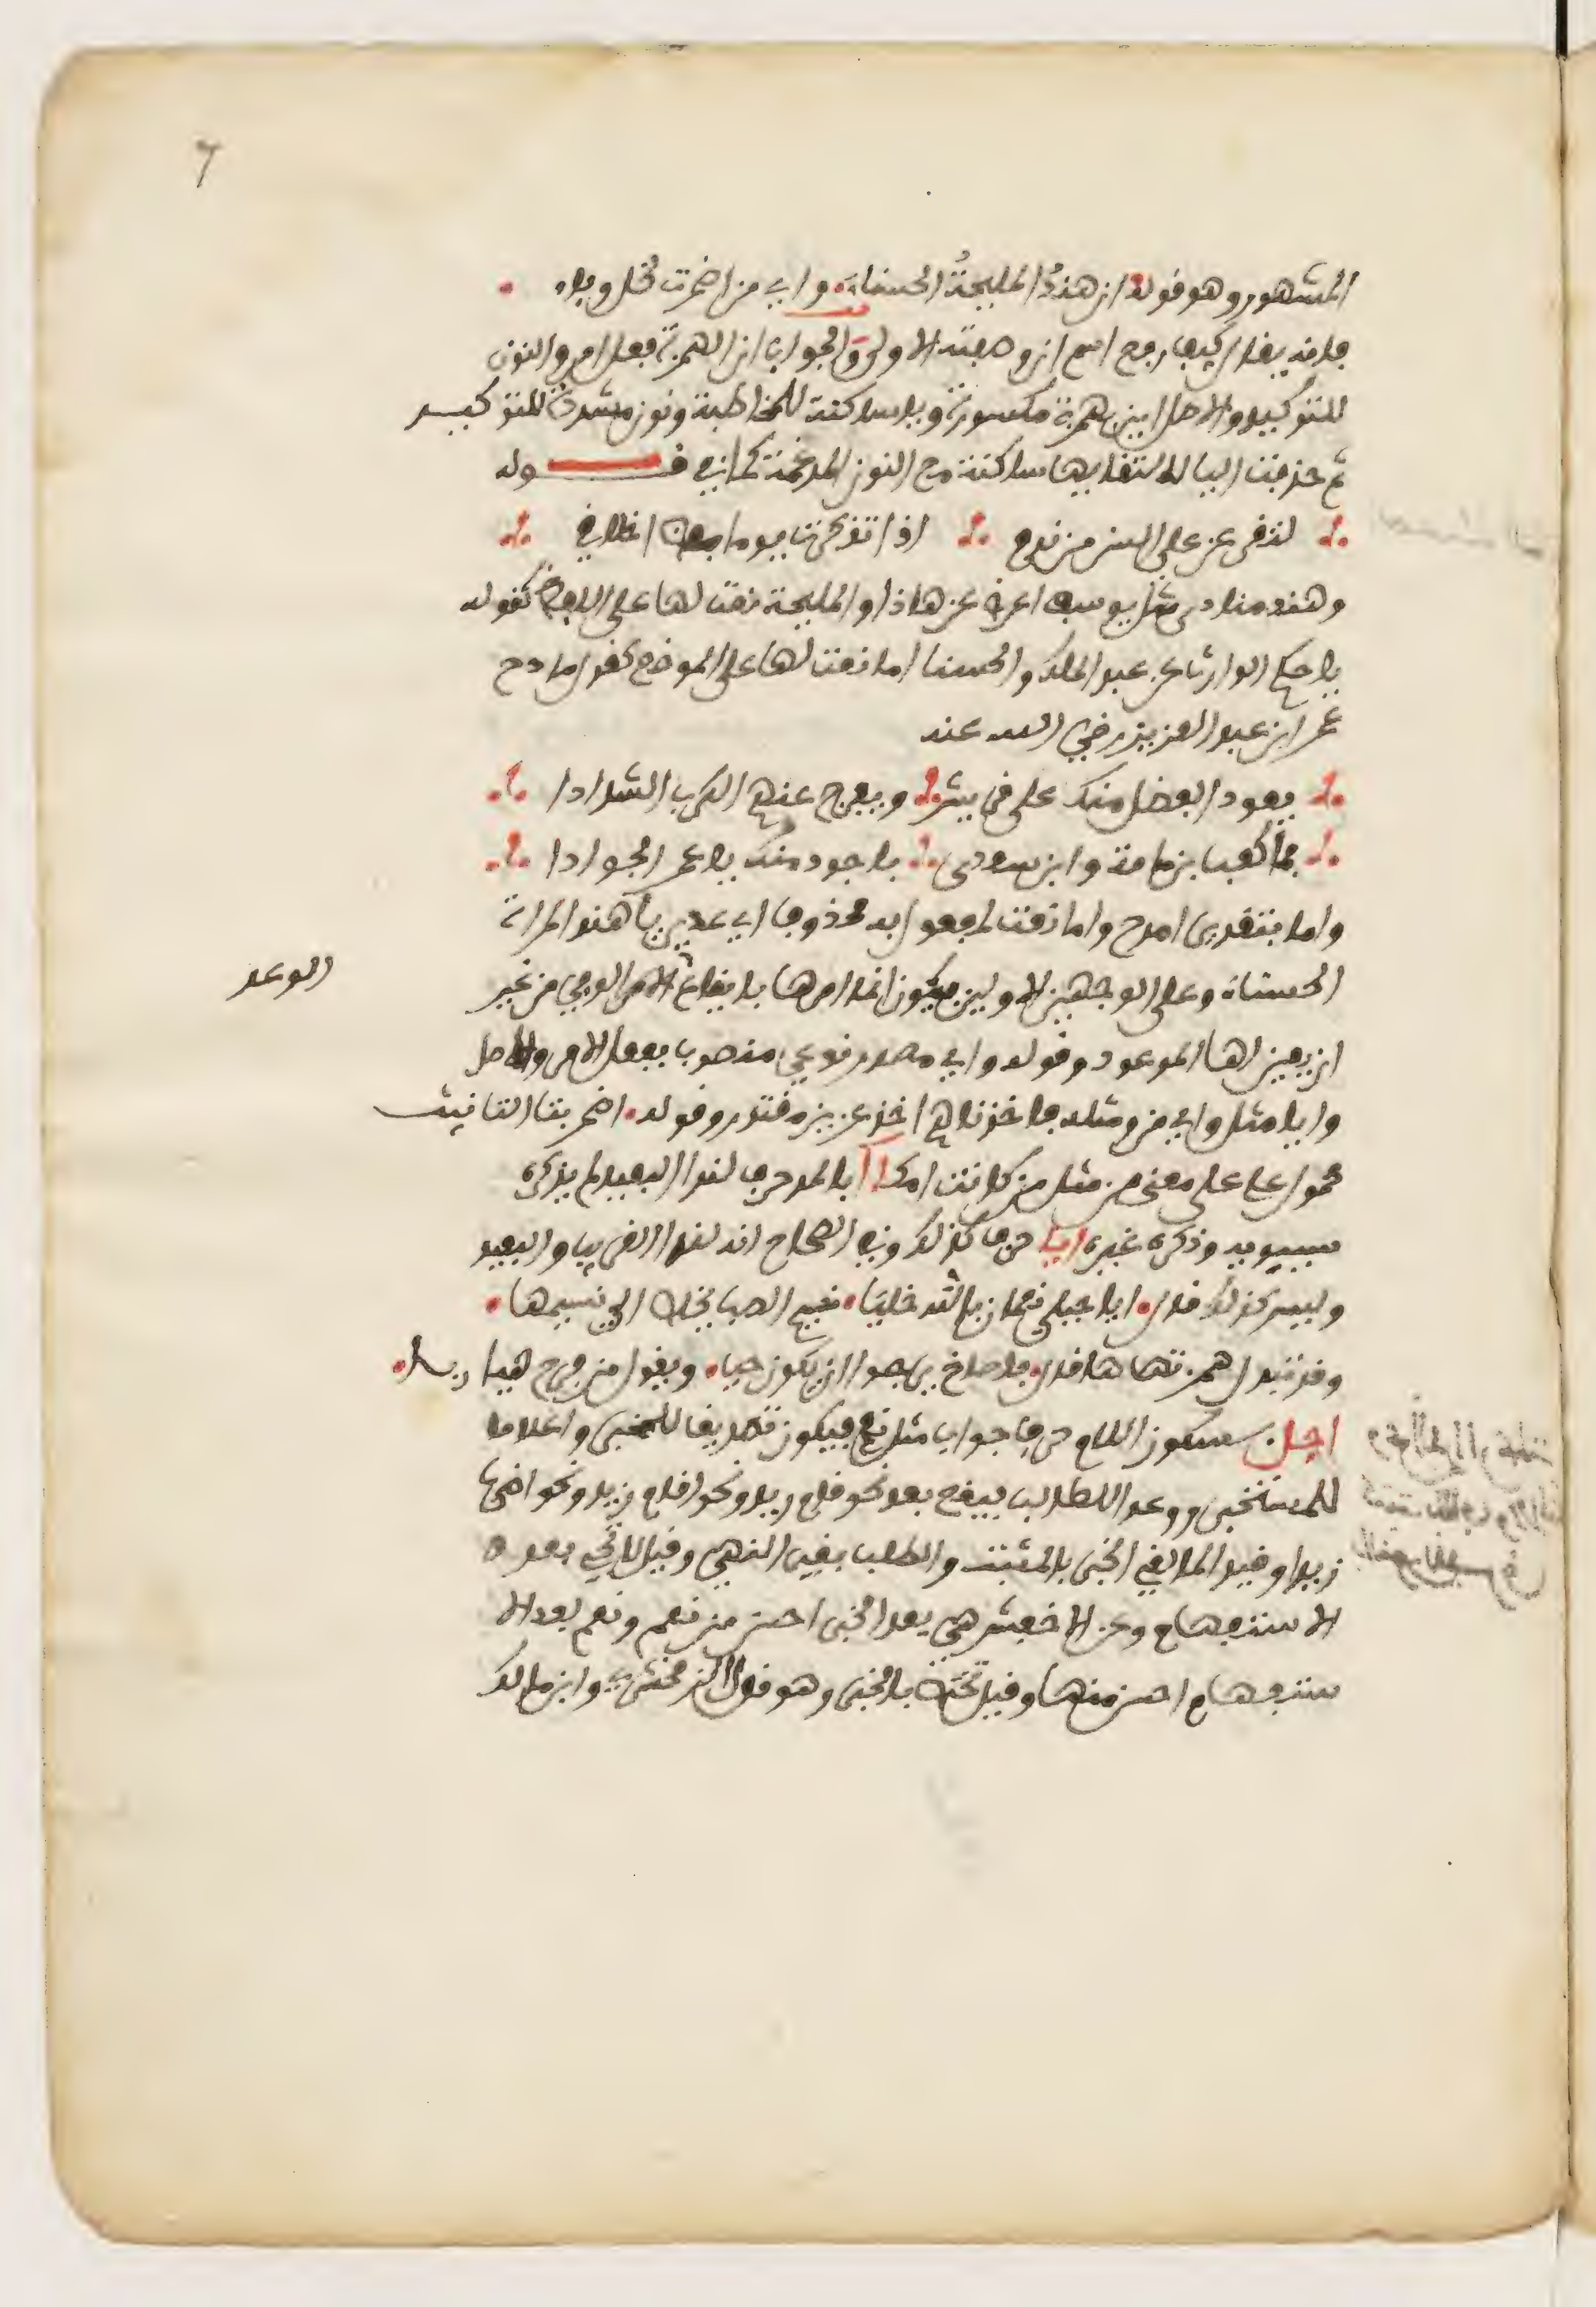 7
المشهور وهو قوله ان هندُ المليحةُ الحسناءَ • وأي من اضمرت لخل وفاء •
فانه يقال كيف رفع اسم ان وصفته الاولى والجواب ان الهمزة فعل امر والنون
للتوكيد والاصل اين بهمزة مكسورة وياء ساكنة للمخاطبة ونون مشددة للتوكيد
ثم حذفت اليا لالتقايها ساكنة مع النون المدغمة كما في قـــوله
لتقرعن علي السن من ندم اذا تذكرت يوما بعض اخلاقي
وهند منادى مثل يوسف اعرض عن هاذا والمليحة نعت لها على اللفظ كقوله
يا حكم الوارث عن عبد الملك والحسنا اما نعت لها على الموضع كقول مادح
عمر ابن عبد العزيز رضي الله عنه
يعود الفضل منك على قريش ويفرج عنهم الكرب الشدادا
فما كعب بن مامة وابن سعدى باجود منك يا عمر الجوادا
واما بتقدير امدح واما نعت لمفعول به محذوف اي عدي يا هند المراة
الحسناء وعلى الوجهين الاولين فيكون انما امرها بايقاع الوعد الوفي من غير
ان يعين لها الموعود وقوله وأي مصدر نوعي منصوب بفعل الامر والاصل
وايا مثل وأي من ومثله فاخذناهم اخذ عزيز مقتدر وقوله • اضمرت بتا التانيث
محمول على معنى من مثل من كانت امك آ بالمد حرف لندا البعيد لم يذكره
سيبويه وذكره غيره ايا حرف كذلك وفي الصحاح انه لندا القريب والبعيد
وليس كذلك قال • ايا جبلي نعمان بالله خليا • نسيم الصبا يخلص الي نسيمها •
وقد تبدل همزتها ها قال • فاصاخ يرجوا ان يكون حيا • ويقول من فرح هيا ربا •
اجل بسكون اللام حرف جواب مثل نعم فيكون تصديقا للمخبر واعلاما
للمستخبر ووعدا للطالب فيقع بعد نحو قام زيد ونحو اقام زيد ونحو اضرب
زيدا وقيد المالقي الخبر بالمثبت والطلب بغير النهي وقيل لا تجي بعد
الاستفهام وعن الاخفش هي بعد الخبر احسن من نعم ونعم بعد الا
ستفهام احسن منها وقيل تختص بالخبر وهو قول الزمخشري وابن مالك